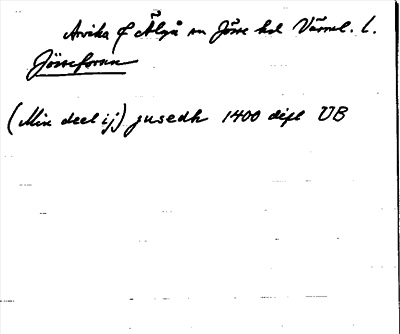 Arvika o Älgå sn Jösse hd Värml. l.
Jösseforsen
(Min deel ij) jusedh 1400 dipl UB